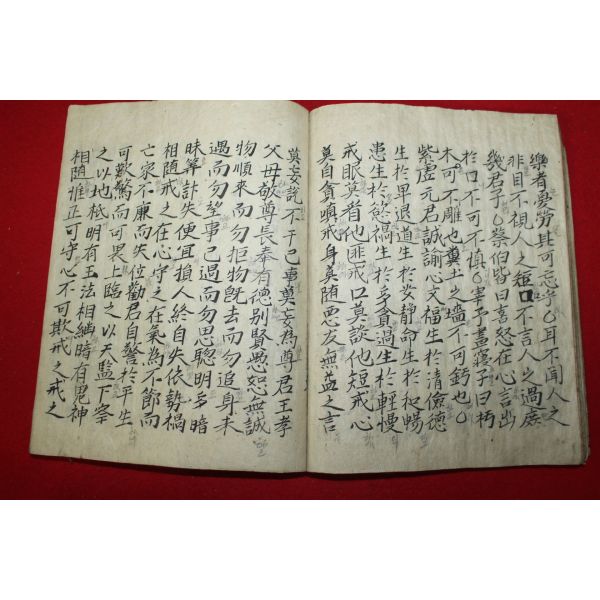 樂者憂勞其可忘乎乙耳不聞人之
非目不視人之短口不言人之過處
幾君子乙蔡伯皆曰喜怒在心言出
於口不可不慎乙宰予晝寢子曰朽
木可不雕也糞土之墻不可鈣也乙
紫虛元君誠諭心文福生於清儉德
生於早退道生於安静命生於和暢
患生於慾禍生於多貪過生於輕慢
戒眼莫看他匪戒口莫談他短戒心
莫自貪嗔戒身莫随惡友無益之言
莫妄説不干己事莫妄為尊君王孝
父母敬尊長奉有德别賢愚恕無誠
物順來而勿拒物旣去而勿追身未
遇而勿望事已過而勿思聰明多暗
昧筭計失便宜損人終自失依勢禍
相随戒之在心守之在氣為不節而
亡家不廉而失位勸君自警於平生
可歎驚而可畏上臨之以天監下察
之以地祇明有王法相継暗有鬼神
相随惟正可守心不可欺戒之戒之